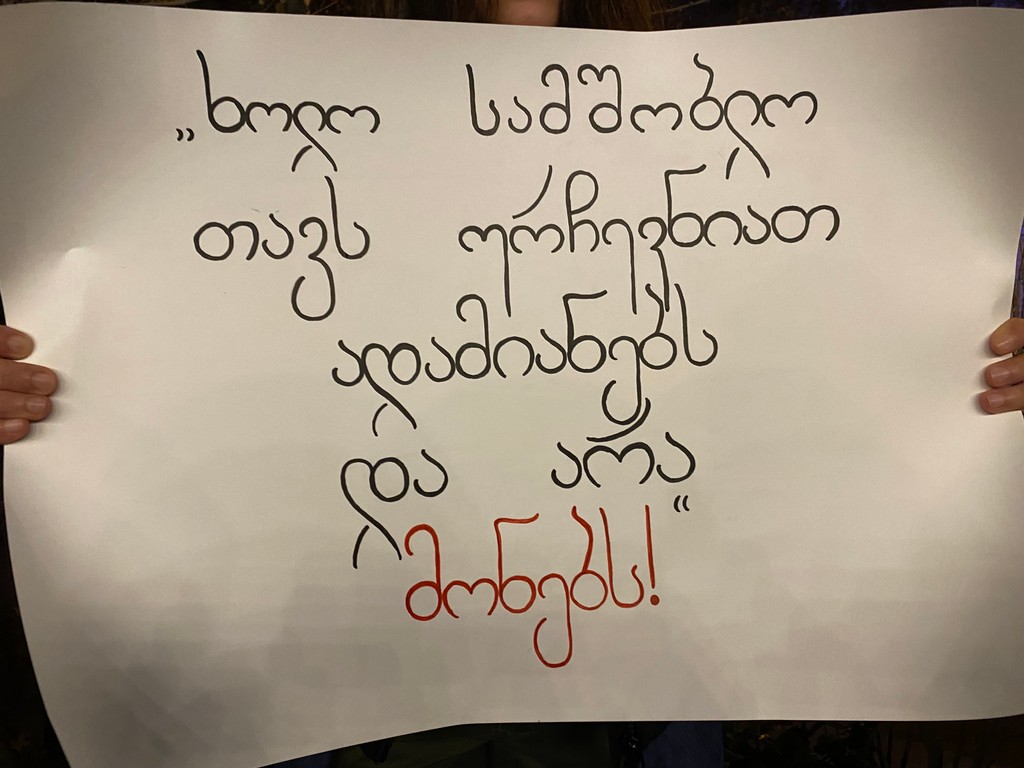 „ხოლო სამშობლო
თავს ურჩევნიათ
ადამიანებს
და არა
მონებს!“